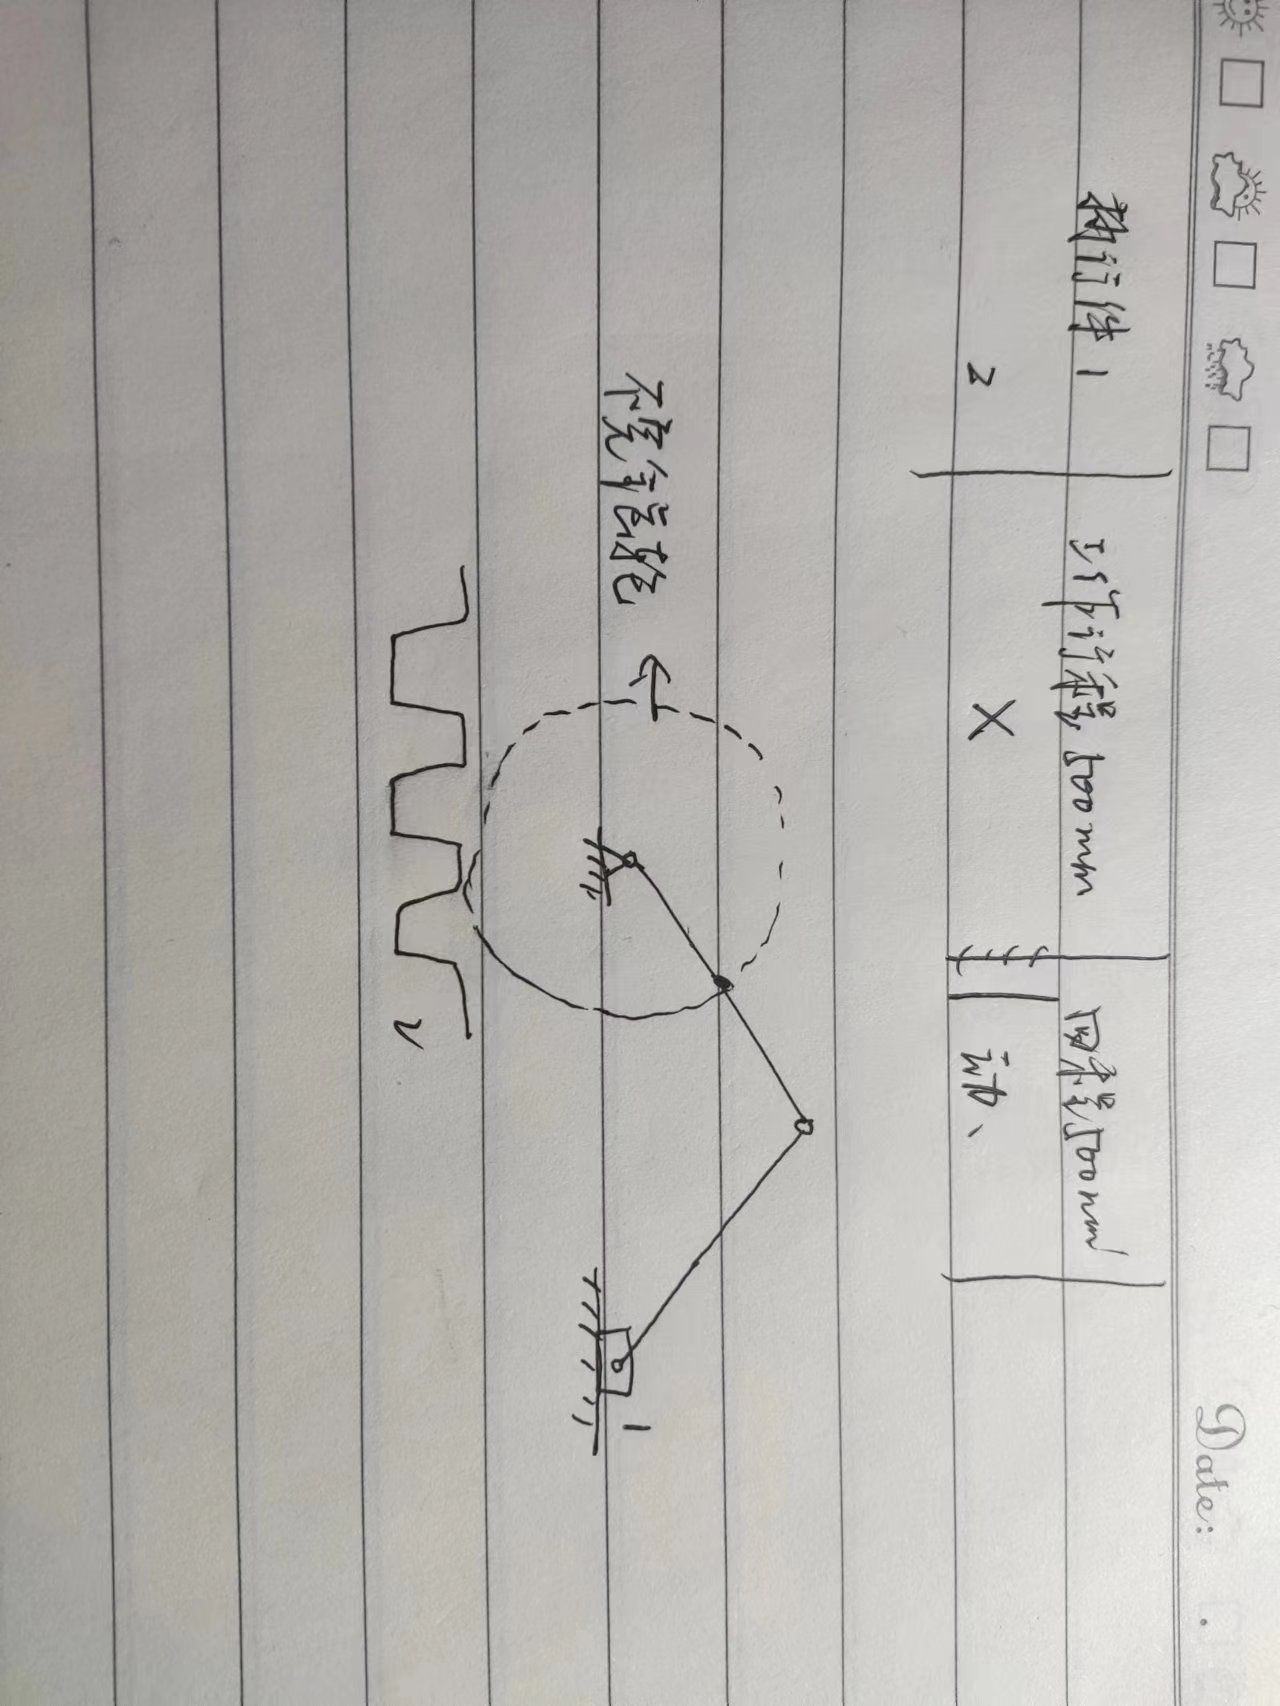 Date:
执行件1 工作行程500mm 回程500mm
2 X 动、
不完全齿轮
1
2